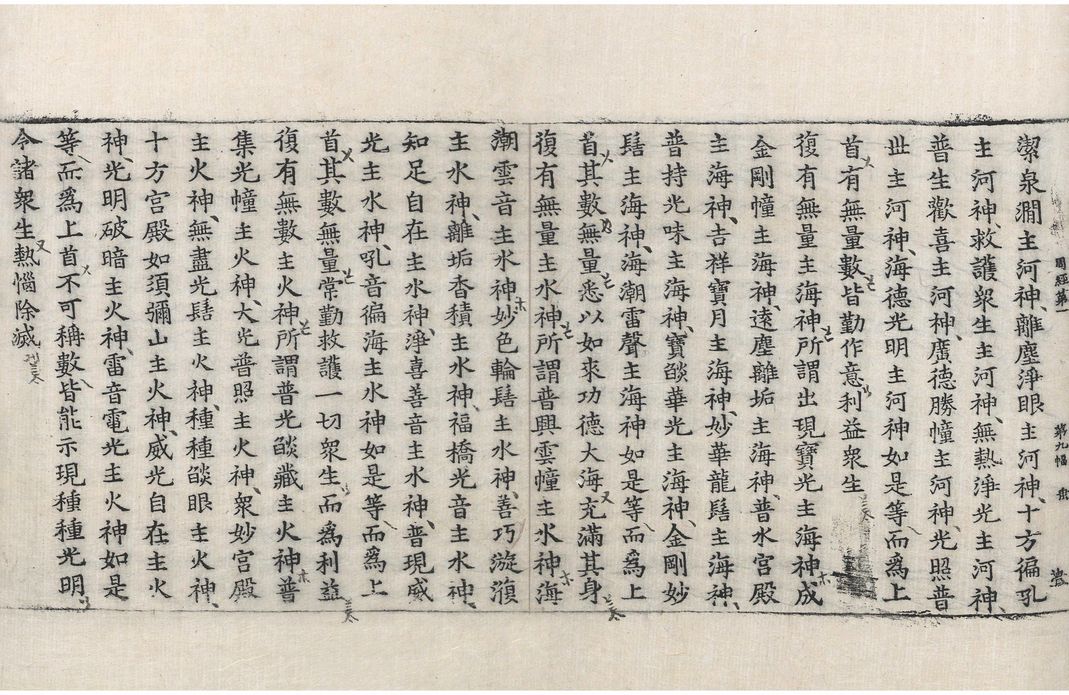 周經第一 第九幅
潔泉澗主河神、離塵淨眼主河神、十方徧吼
主河神、救護衆生主河神、無熱淨光主河神、
普生歡喜主河神、廣德勝幢主河神、光照普
世主河神、海德光明主河神如是等、而爲上
首有無量數皆勤作意利益衆生
復有無量主海神所謂出現寶光主海神、成
金剛幢主海神、遠塵離垢主海神、普水宮殿
主海神、吉祥寶月主海神、妙華龍髻主海神、
普持光味主海神、寶燄華光主海神、金剛妙
髻主海神、海潮雷聲主海神如是等、而爲上
首其數無量悉以如來功德大海充滿其身
復有無量主水神所謂普興雲幢主水神海
潮雲音主水神妙色輪髻主水神、善巧漩澓
主水神、離垢香積主水神、福橋光音主水神、
知足自在主水神、淨喜善音主水神、普現威
光主水神、吼音徧海主水神如是等、而爲上
首其數無量常勤救護一切衆生而爲利益
復有無數主火神所謂普光燄藏主火神普
集光幢主火神、大光普照主火神、衆妙宮殿
主火神、無盡光髻主火神、種種燄眼主火神、
十方宮殿如須彌山主火神、威光自在主火
神、光明破暗主火神、雷音電光主火神如是
等、而爲上首不可稱數皆能示現種種光明、
令諸衆生熱惱除滅